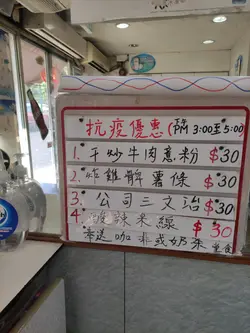 抗疫優惠(下午PM 3:00至5:00
1. 干炒牛肉意粉 $30
2. 炸雞髀薯條 $30
3. 公司三文治 $30
4. 酸辣米線 $30
奉送咖啡或奶茶 堂食